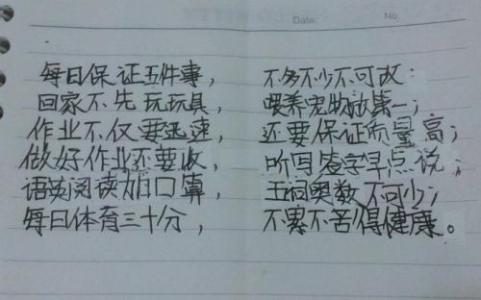 Date. No.
每日保证五件事， 不多不少不可改：
回家不先玩玩具， 喂养宠物放第一；
作业不仅要迅速， 还要保证质量高；
做好作业还要收， 听写签字早点说；
语英阅读加口算， 奥数不可少；
每日体育三十分， 不累不苦得健康。